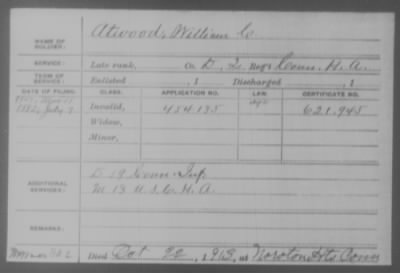 NAME OF SOLDIER: Atwood, William C.
SERVICE: Late rank, Co. D, 2 Reg't Conn. H. A.
TERM OF SERVICE: Enlisted , 1 Discharged , 1
DATE OF FILING. CLASS. APPLICATION NO. LAW. CERTIFICATE NO.
1882, July Invalid, 454.135 621.945
Widow,
Minor,
ADDITIONAL SERVICES: D 19 Conn. Inf.
M 13 U. S. C. H. A.
REMARKS:
Died Oct 22, 1915, at Noroton Hts Conn